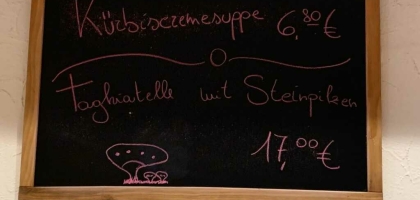 Kürbiscremesuppe 6,80€
Tagliatelle mit Steinpilzen
17,00€